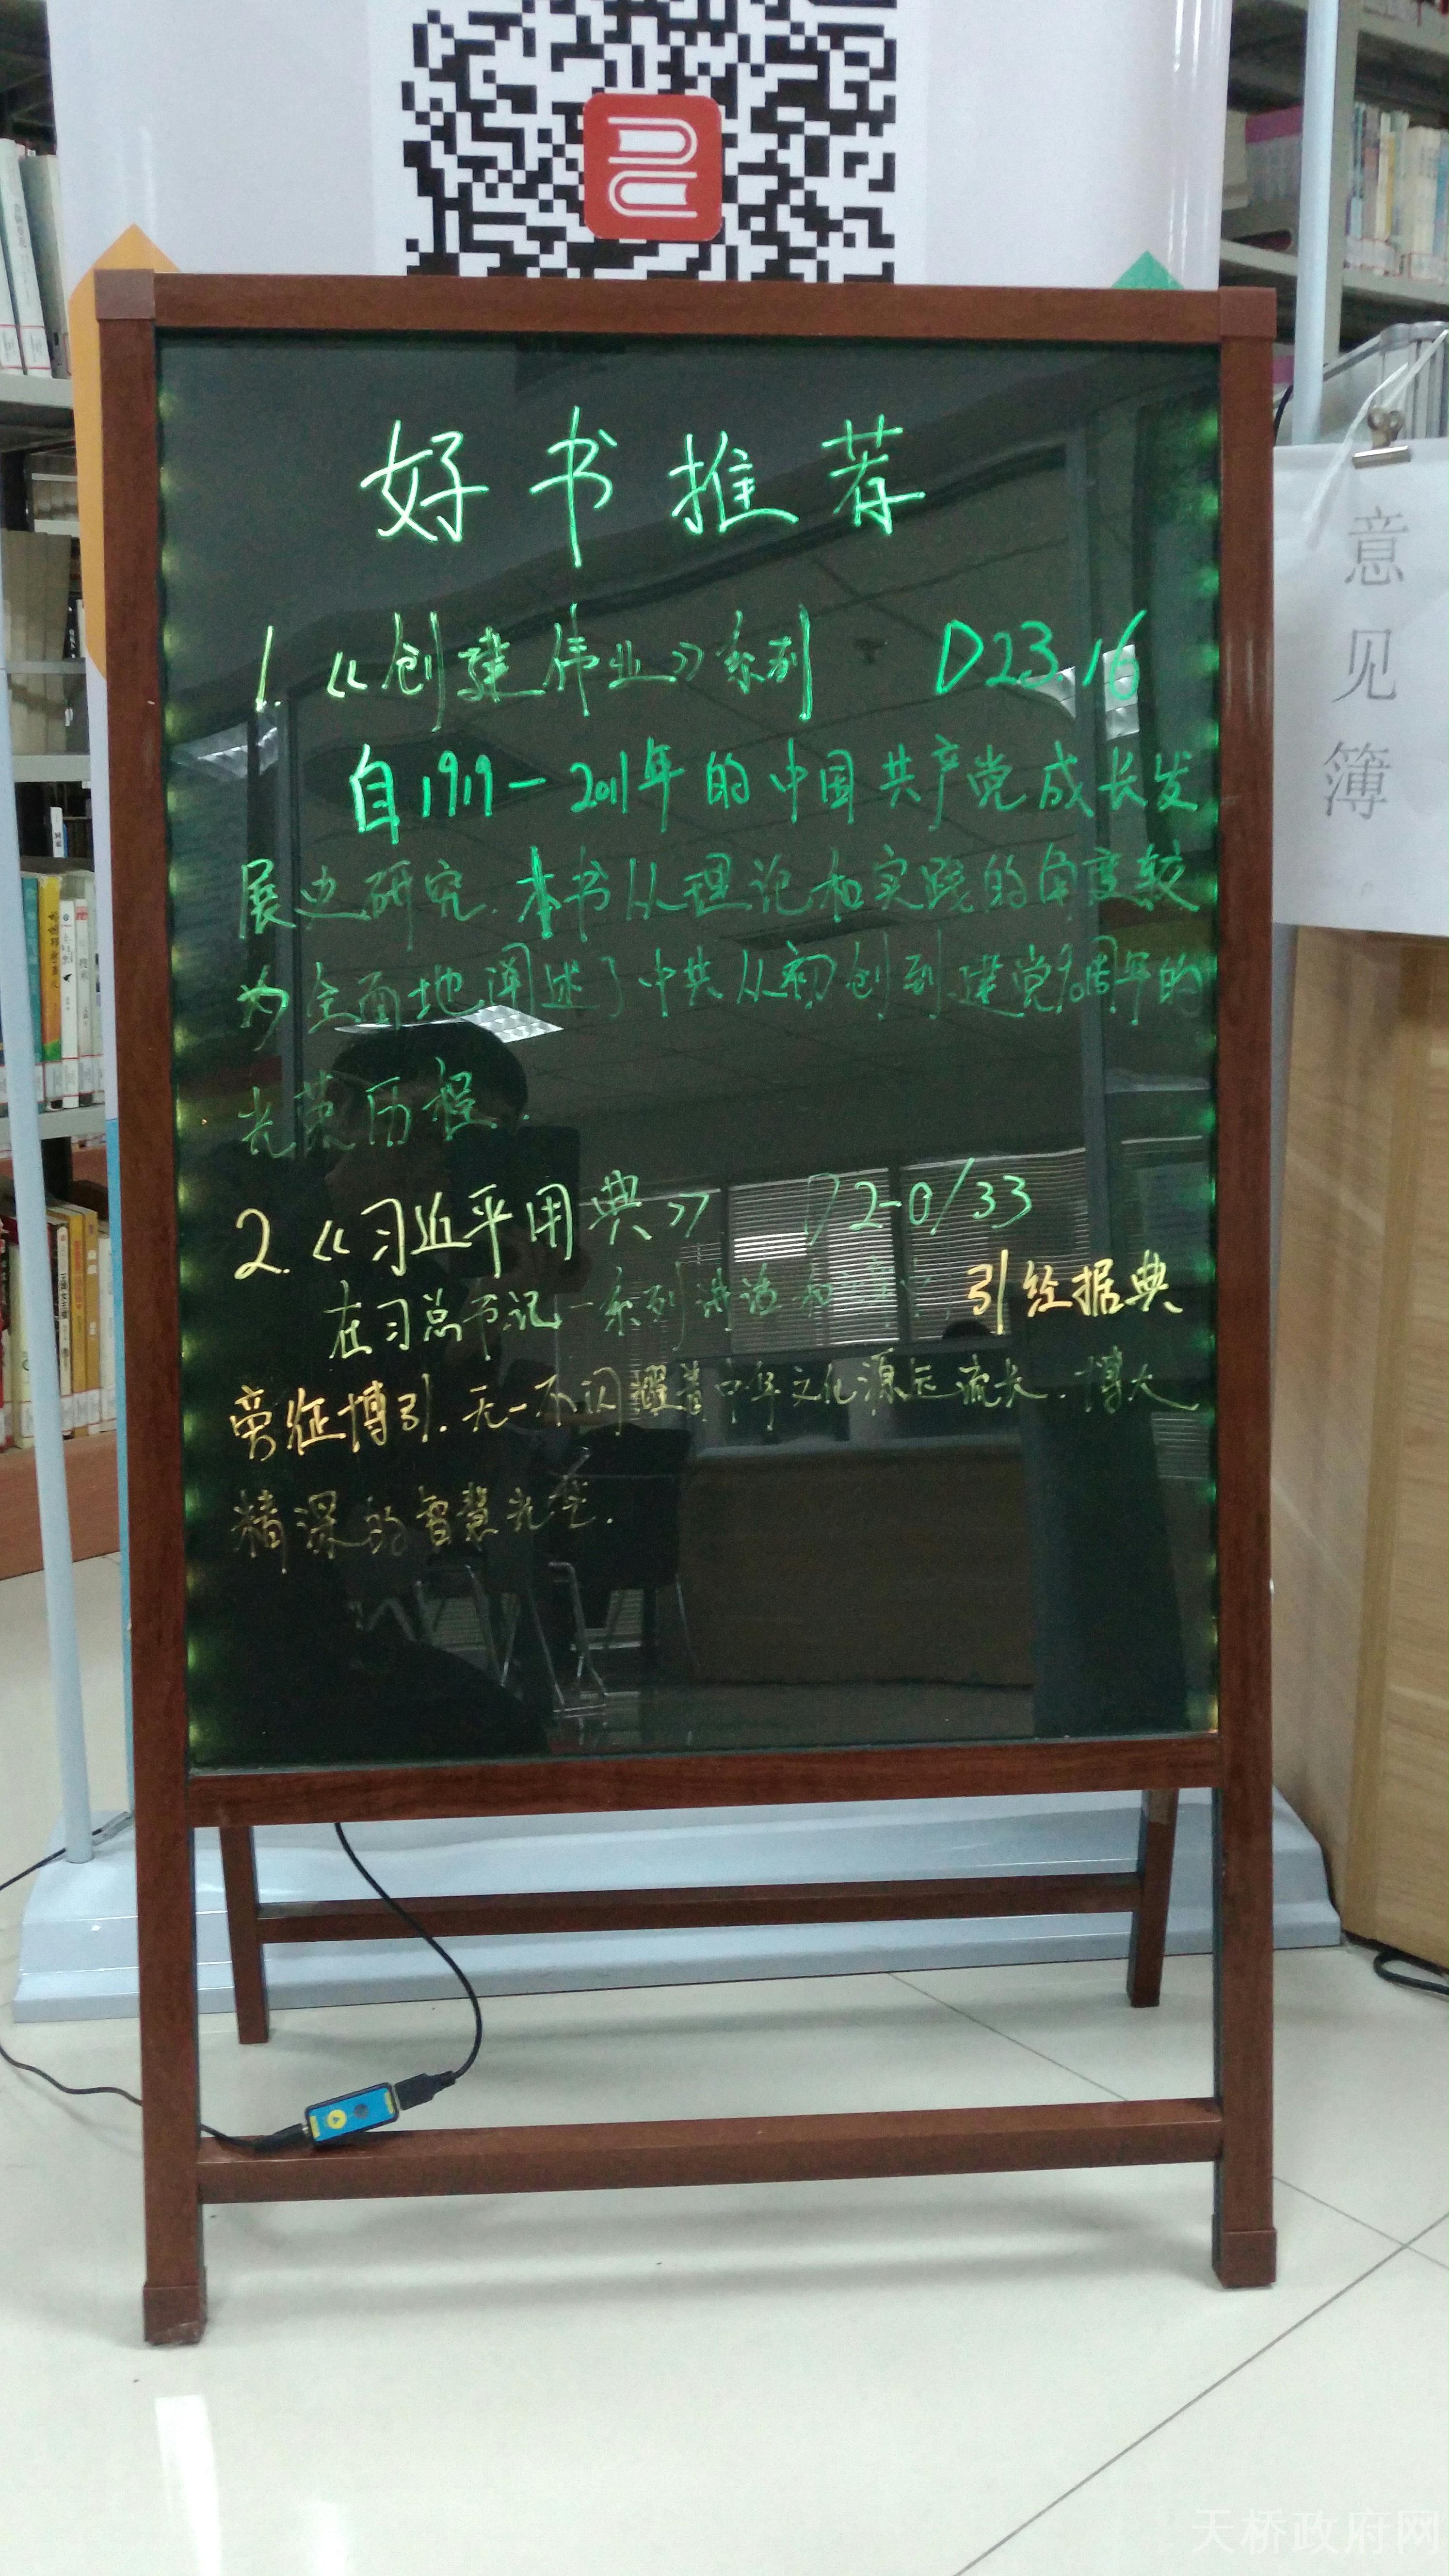 好书推荐
1.《创建伟业》系列 D23.16
自1919-2011年的中国共产党成长发
展史研究.本书从理论和实践的角度较
为全面地阐述了中共从初创到建党90周年的
光荣历程.
2.《习近平用典》 D2-0/33
在习总书记一系列讲话和 引经据典
旁征博引.无一不闪耀着中华文化源远流长.博大
精深的智慧光芒.
意见簿
天桥政府网